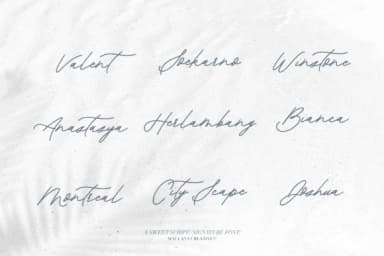 Valent Soekarno Winstone
Anastasya Herlambang Bianca
Montreal City Scape Joshua
A SWEET SCRIPT SIGNATURE FONT